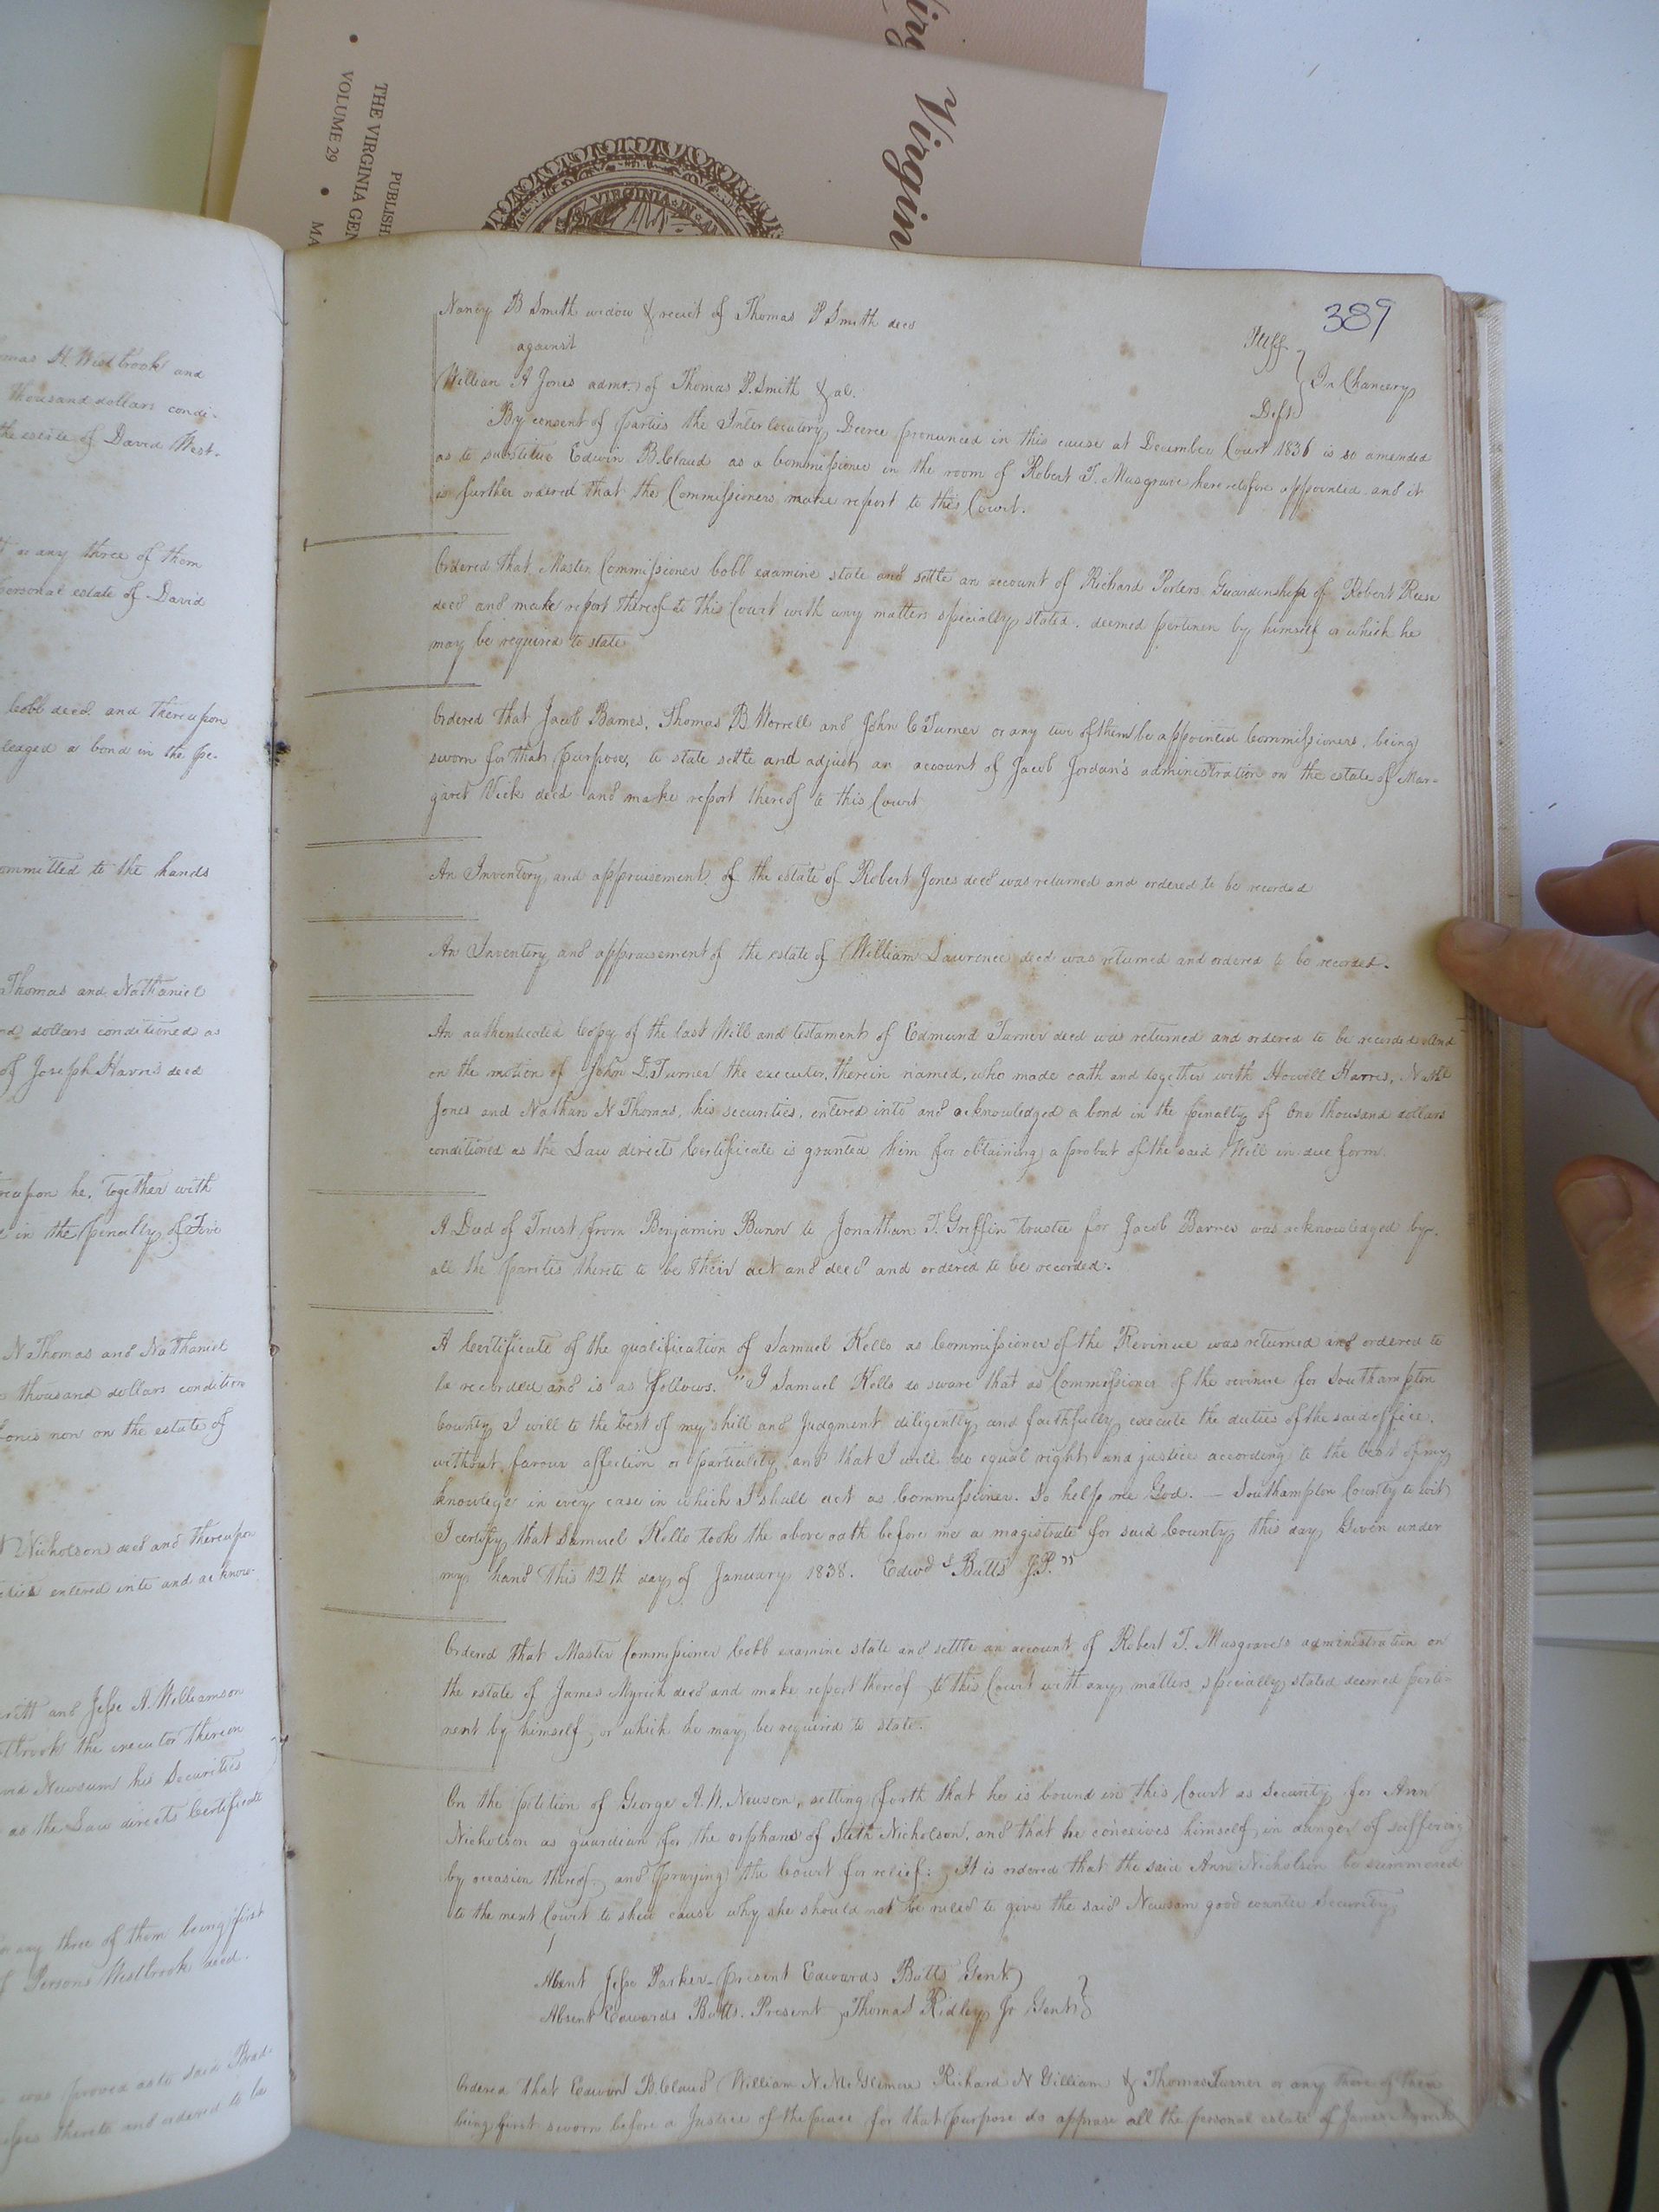 Virgin
PUBLISH
THE VIRGINIA GEN
VOLUME 29 • MA
VIRGINIA IN
omas H. Westbrook and
thousand dollars condi-
the estate of David West-
or any three of them
personal estate of David
Cobb decd. and thereupon
ledged a bond in the pe-
ommitted to the hands
Thomas and Nathaniel
dollars conditioned as
of Joseph Harris decd
reupon he, together with
in the penalty of Five
N Thomas and Nathaniel
thousand dollars condition
non on the estate of
Nicholson decd and thereupon
entered into and acknow-
and Jesse A. Williamson
the executor therein
Newsum his Securities
as the Law directs Certificate
or any three of them being first
Persons Westbrook decd.
was proved as to said
thereto and ordered to be
389
Nancy B Smith widow & relict of Thomas P Smith decd
Plff
against
In Chancery
William A Jones admr. of Thomas P. Smith & al.
Deft
By consent of parties the Interlocutory Decree pronounced in this cause at December Court 1836 is so amended
as to substitue Edwin B. Claud as a Commissioner in the room of Robert T. Musgrave heretofore appointed and it
is further ordered that the Commissioners make report to this Court.
Ordered that Master Commissioner Cobb examine state and settle an account of Richard Porters Guardinship of Robert Reese
decd and make report thereof to this Court with any matters specially stated, deemed pertinen by himself or which he
may be required to state
Ordered that Jacob Barnes, Thomas B Worrell and John C Turner or any two of them be appointed Commissioners, being
sworn for that purpose, to state settle and adjust an account of Jacob Jordan's administration on the estate of Mar-
garet Vick decd and make report thereof to this Court
An Inventory and appraisement of the estate of Robert Jones decd was returned and ordered to be recorded
An Inventory and appraisement of the estate of William Lawrence decd was returned and ordered to be recorded.
An authenticated Copy of the last Will and testament of Edmund Turner decd was returned and ordered to be recorded And
on the motion of John D. Turner the executor, therein named, who made oath and together with Howell Harris, Nathl
Jones and Nathan N Thomas, his securities, entered into and acknowledged a bond in the penalty of One thousand dollars
conditioned as the Law directs Certificate is granted him for obtaining a probat of the said Will in due form.
A Deed of Trust from Benjamin Bunn to Jonathan T. Griffin trustee for Jacob Barnes was acknowledged by
all the parties thereto to be their act and deed and ordered to be recorded.
A Certificate of the qualification of Samuel Kello as Commissioner of the Revinue was returned and ordered to
be recorded and is as follows. "I Samuel Kello do sware that as Commissioner of the revinue for Southampton
County I will to the best of my skill and Judgment diligently and faithfully execute the duties of the said office,
without favour affection or partiality and that I will do equal right and justice according to the best of my
knowlege in every case in which I shall act as Commissioner. So help me God. — Southampton County to wit
I certify that Samuel Kello took the above oath before me a magistrate for said County this day Given under
my hand this 12th day of January 1838. Edwd Butts J.P."
Ordered that Master Commissioner Cobb examine state and settle an account of Robert T. Musgrave's administration on
the estate of James Myrick decd and make report thereof to this Court with any matters specially stated deemed perti-
nent by himself or which he may be required to state.
On the petition of George A. W. Newsom, setting forth that he is bound in this Court as Security for Ann
Nicholson as guardian for the orphans of Nicholson, and that he conceives himself in danger of suffering
by occasion thereof and praying the Court for relief: It is ordered that the said Ann Nicholson be summoned
to the next Court to shew cause why she should not be ruled to give the said Newsom good counter Security
Absent Jesse Parker - present Edwards Butts Gent
Absent Edwards Butts. Present Thomas Ridley Jr Gent
Ordered that Edward B. Claud William N. McGlemore Richard N Gilliam & Thomas Turner or any three of them
being first sworn before a Justice of the peace for that purpose do apprase all the personal estate of James Myrick